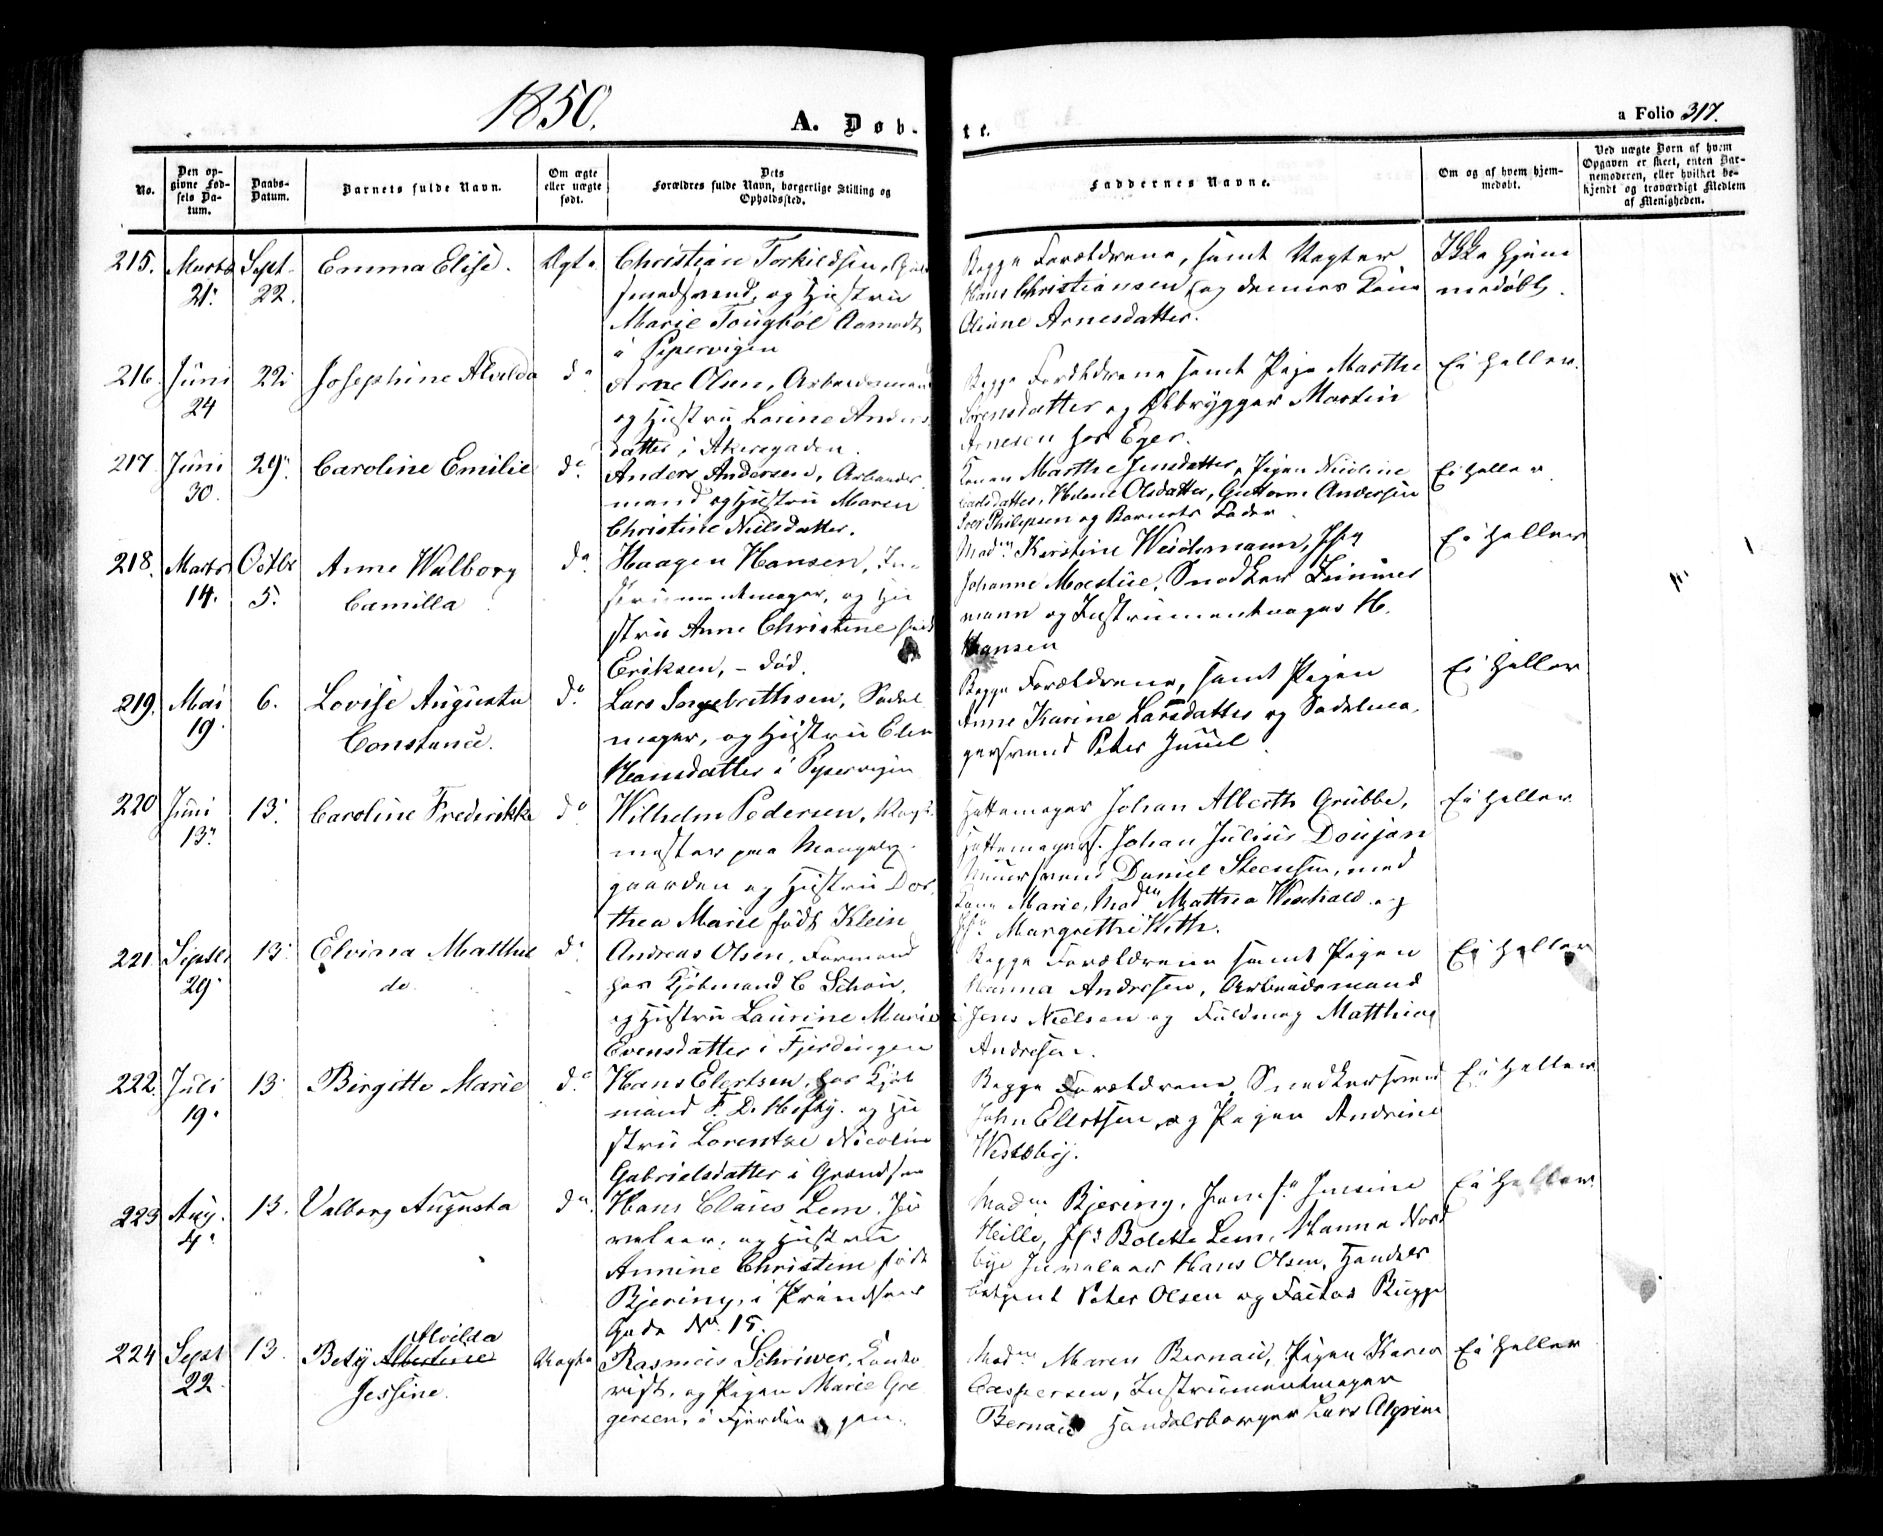 1850.
A. Døb-
te.
a Folio 317.
No.
Den op-
givne Fød-
sels Da-
tum.
Daabs-
Datum.
Barnets fulde Navn.
Om ægte
eller uægte
født.
Dets
Forældres fulde Navn, borgerlige Stilling og
Opholdssted.
Faddernes Navne.
Om og af hvem hjem-
medøbt.
Ved uægte Børn af hvem
Opgaven er skeet, enten Bar-
nemoderen, eller hvilket be-
kjendt og troværdigt Medlem
af Menigheden.
215.
Marts
21.
Sept.
22.
Emma Elise.
Ægte
Christian Torkildsen,
smedsvend, og Hustru
Marie Tougbøl Aamodt
i Pipervigen
Begge Forældrene, samt Vægter
Hans Christiansen og dennes Kone
Oliane Arnesdatter.
Ikke hjem
medøbt.
216.
Juni
24
22.
Josephine Alvilda
do
Arne Olsen, Arbeidsmand
og Hustru Larine Anders
datter i Akersgaden.
Begge Forældrene samt Pige Marthe
Sørensdatter og Ølbrygger Martin
Arnesen hos Eger.
Ei heller.
217
Juni
30.
29.
Caroline Emilie
do
Anders Andersen, Arbeids
mand og Hustru Maren
Christine Nielsdatter.
Konen Marthe Jensdatter, Pigen Nicoline
Carlsdatter, Helene Olsdatter, Guttorm Andersen
Iver Philipsen og Barnets Fader.
Ei heller.
218.
Marts
14.
Octbr
5.
Anne Walborg
Camilla
do
Haagen Hansen, In-
strumentmager, og Hu
stru Anne Christine født
Eriksen, - død.
Madm Kirstine Weidemann, Jfr
Johanne Moestue, Snedker Zimmer
mann og Instrumentmager H.
Hansen
Ei heller
219.
Mai
19.
6.
Lovise Augusta
Constance.
do
Lars Ingebrethsen, Sadel
mager, og Hustru Elen
Hansdatter i Pipervigen
Begge Forældrene, samt Pigen
Anne Karine Larsdatter og Sadelma
gersvend Peter Juuel.
Ei heller
220
Juni
13.
13.
Caroline Frederikke
do
Wilhelm Pedersen, Vagt
mester paa Mangels
gaarden og Hustru Dor
thea Marie født Klein
Hattemager Johan Alberth Grübbe,
Hattemagers. Johan Julius Doujan
Muursvend Daniel Steensen, med
Kone Marie, Madm Mathea Weshald og
Jfr. Margrethe Keth.
Ei heller.
221
Septbr
29.
13.
Elvina Mathil
de
do
Andreas Olsen, Formand
hos Kjøbmand C Schou,
og Hustru Laurine Marie
Evensdatter i Fjerdingen
Begge Forældrene samt Pigen
Hanna Andresen, Arbeidsmand
Jens Nielsen og Fuldmæg Matthias
Andresen.
Ei heller
222.
Juli
19.
13.
Birgitte Marie
do
Hans Elertsen, hos Kjøb
mand F. D. Hefty. og Hu
stru Lorentze Nicoline
Gabrielsdatter i Grændsen
Begge Forældrene, Snedkersvend
John Ellertsen, og Pigen Andrine
Westby.
Ei heller
223
Aug.
4.
13.
Valborg Augusta
do.
Hans Claus Lem, Ju
veleer, og Hustru
Annine Christine født
Bjering, i Prindsens
Gade No. 15.
Madm Bjering, Jomfr Jensine
Hille, Jfr Bolette Lem, Hanna Nord
bye Juveleer Hans Olsen, Handels
betjent Peter Olsen og Factor Bugge
Ei heller.
224
Sept
22.
13.
Alvilda
Betzy Albertine
Jessine.
Uægte
Rasmus Schriwer, Konto
rist, og Pigen Marie Gre
gersen, i Fjerdingen.
Madme Maren Bernau, Pigen Karen
Caspersen, Instrumentmager
Bernau Handelsborger Lars Algrim
Ei heller